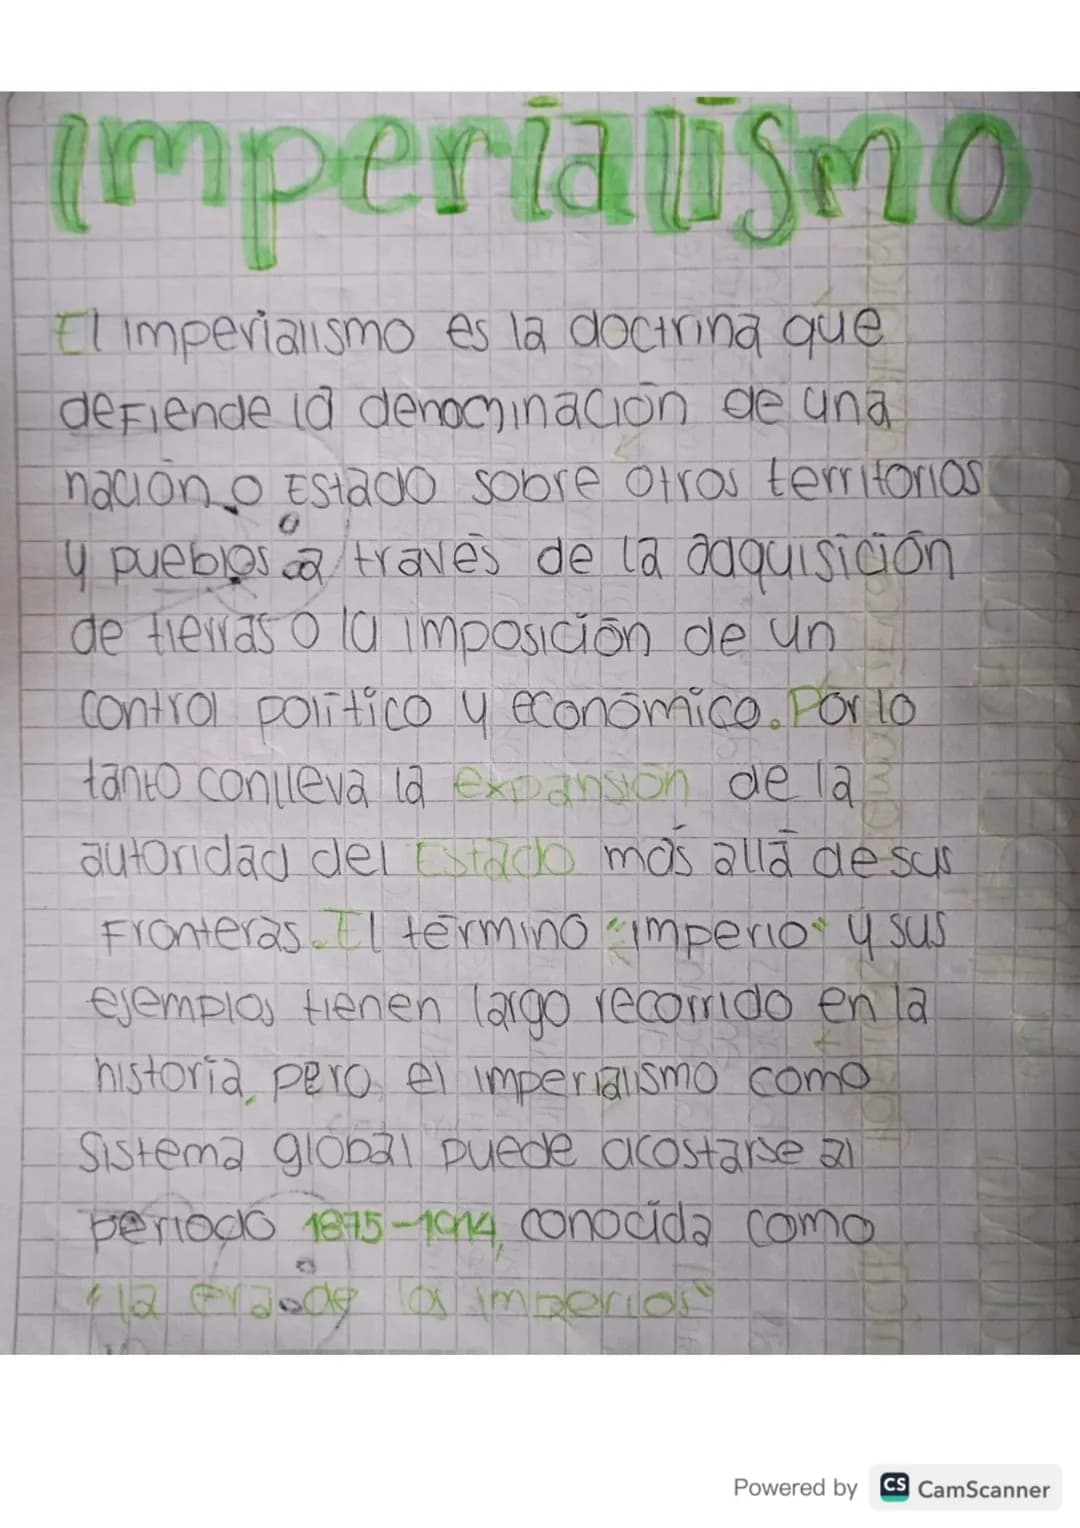 Imperialismo
El imperialismo es la doctrina que
defiende la denominación de una
nación o Estado sobre otros territorios
y pueblos a través de la adquisición
de tierras o la imposición de un
control político y económico. Por lo
tanto conlleva la expansión de la
autoridad del Estado más allá de sus
Fronteras. El término "imperio" y sus
ejemplos tienen largo recorrido en la
historia, pero el imperialismo como
sistema global puede acostarse al
periodo 1875-1914, conocida como
"la era de los imperios"
Powered by CS CamScanner